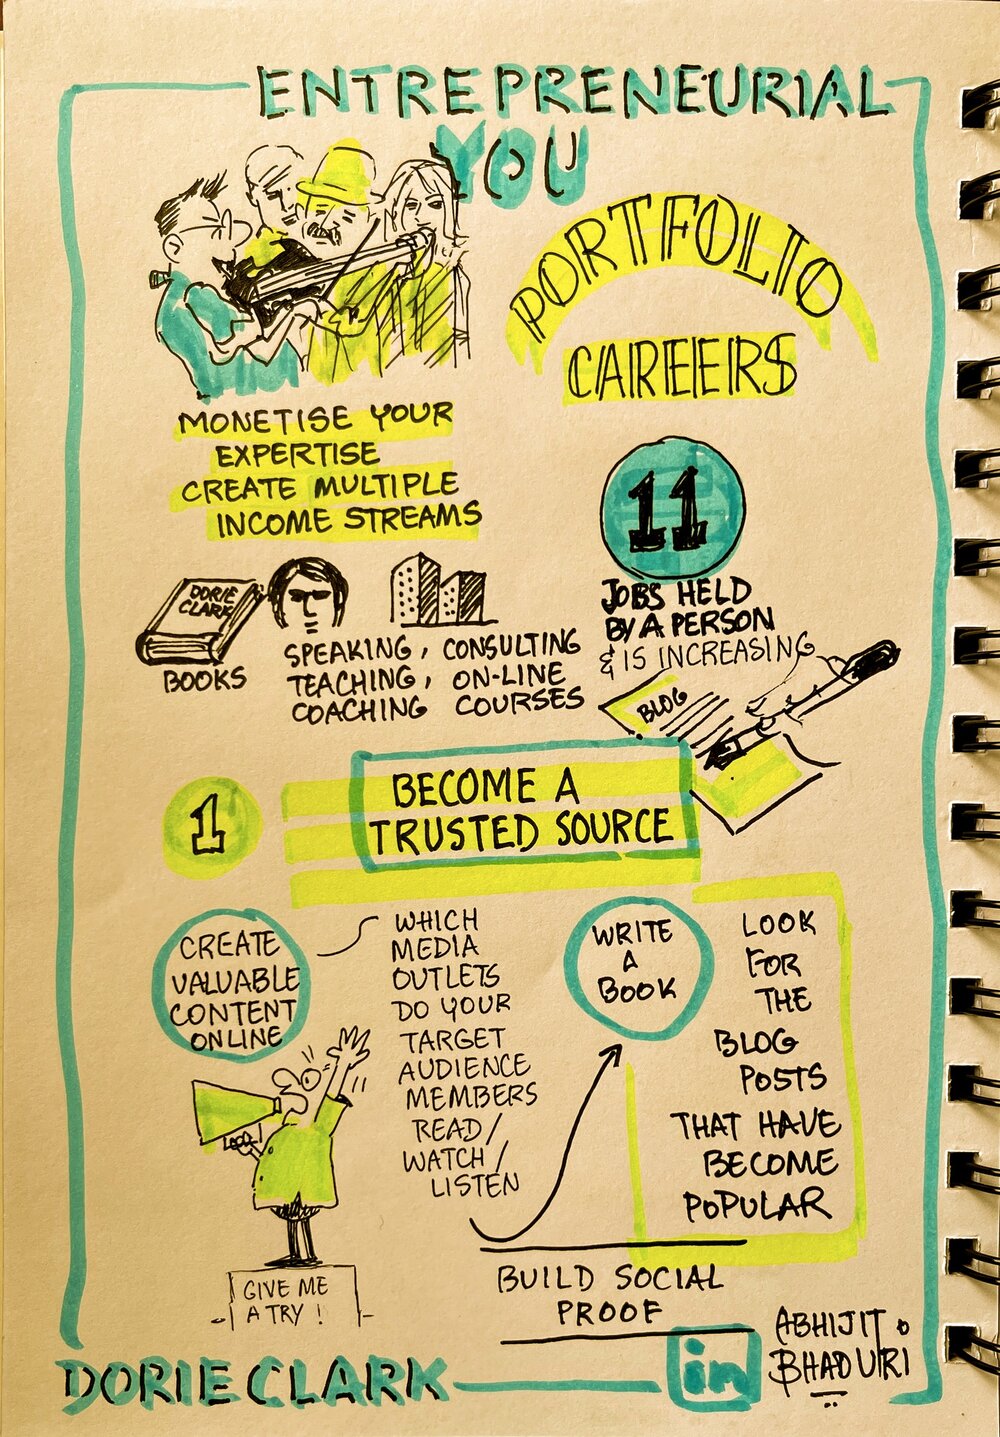 ENTREPRENEURIAL
YOU
PORTFOLIO
CAREERS
MONETISE YOUR
EXPERTISE
CREATE MULTIPLE
INCOME STREAMS
11
JOBS HELD
BY A PERSON
& IS INCREASING
DORIE
CLARK
BOOKS
SPEAKING, CONSULTING
TEACHING, ON-LINE
COACHING COURSES
BLOG
1
BECOME A
TRUSTED SOURCE
CREATE
VALUABLE
CONTENT
ONLINE
WHICH
MEDIA
OUTLETS
DO YOUR
TARGET
AUDIENCE
MEMBERS
READ/
WATCH/
LISTEN
WRITE
A
BOOK
LOOK
FOR
THE
BLOG
POSTS
THAT HAVE
BECOME
POPULAR
GIVE ME
A TRY!
BUILD SOCIAL
PROOF
DORIE CLARK
in
ABHIJIT
BHADURI